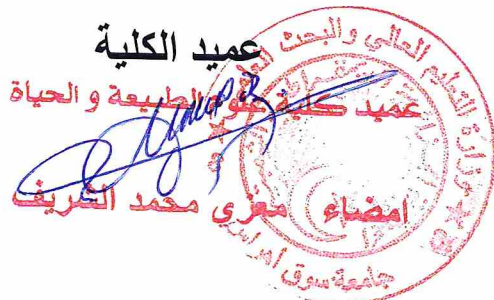 عميد الكلية
عميد كلية علوم الطبيعة و الحياة
امضاء مغزي محمد الشريف
وزارة التعليم العالي والبحث
جامعة سوق أهراس